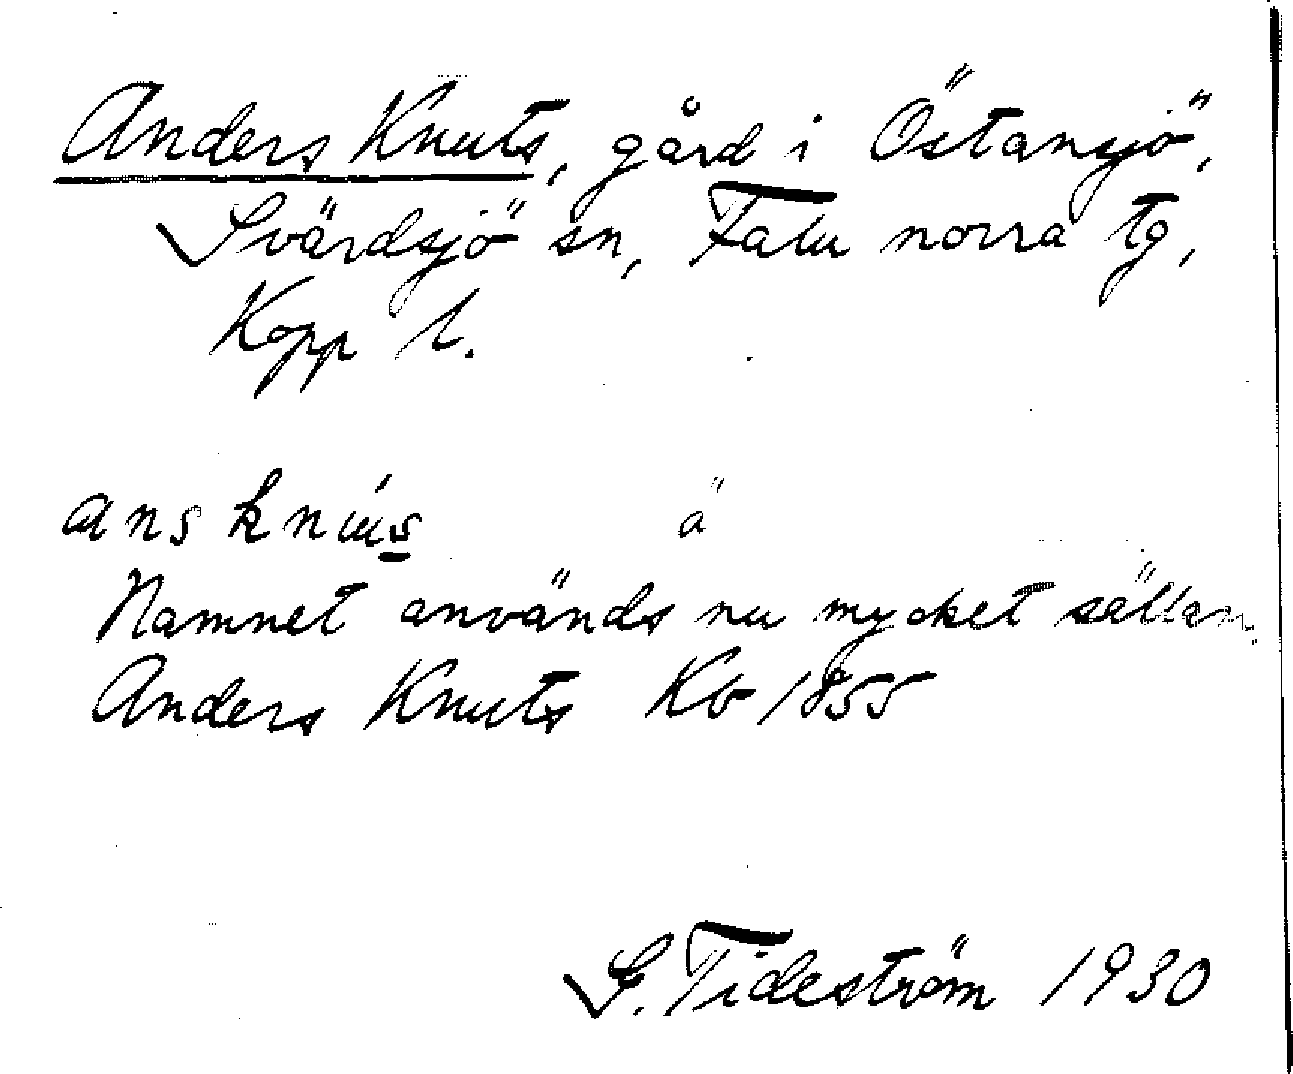 Anders Knuts, gård i Östansjö,
Svärdsjö sn, Falu norra tg,
Kopp l.
ans knús ä
Namnet används nu mycket sällan.
Anders Knuts Kb 1855
G. Tideström 1930